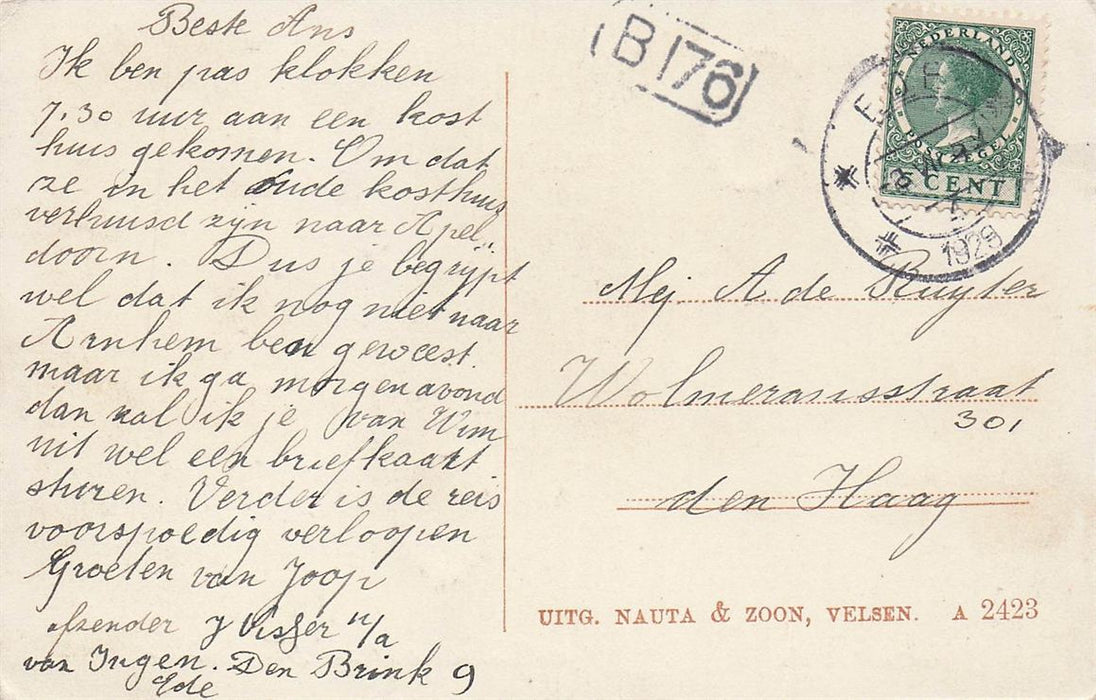 Beste Ans
Ik ben pas klokken
7.30 uur aan een kost
huis gekomen. Om dat
ze in het oude kosthuis
verhuusd zijn naar Apel„
doorn. Dus je begrijpt
wel dat ik nog niet naar
Arnhem ben geweest
maar ik ga morgenavond
dan zal ik je van Wim
uit wel een briefkaart
sturen. Verder is de reis
voorspoedig verloopen
Groeten van Joop
afzender J Visser
van Ingen. Den Brink 9
Ede
B 176
NEDERLAND
POSTZEGEL
CENT
EDE
1929
Mej A de Ruyter
Wolmeransstraat
301
den Haag
UITG. NAUTA & ZOON, VELSEN. A 2423